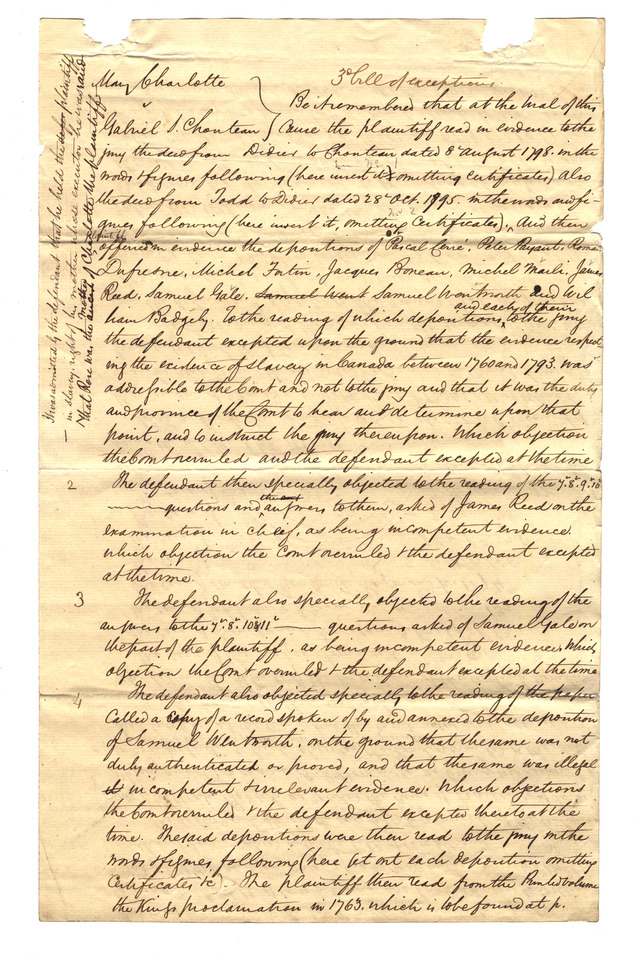 May Charlotte
"
Gabriel S. Chouteau
3d bill of exceptions.
Be it remembered that at the trial of this
Cause the plaintiff read in evidence to the
jury the deed from Didier to Chouteau dated 8th August 1798. in the
words & figures following (here insert it omitting certificates) Also
the deed from Todd to Didier dated 28th Octr. 1795. in the words and fi-
gures following (here insert it, omitting certificates). And then
offered in evidence the depositions of Pascal Cerré, Peter Payant, Romain
Dufresne, Michel Fortin, Jacques Boneau, Michel Marli, James
Reed, Samuel Gale, Samuel Went Samuel Wentworth and Wil
liam Badgely. To the reading of which depositions, and each of them to the jury
the defendant excepted upon the ground that the evidence respect
ing the existence of slavery in Canada between 1760 and 1793. was
addressible to the Court and not to the jury and that it was the duty
and province of the Court to hear and determine upon that
point, and to instruct the jury thereupon. Which objection
the Court overruled and the defendant excepted at the time
2 The defendant then specially objected to the reading of the 7th 8th 9th 10th
questions and the answers to them, asked of James Reed on the
examination in chief, as being incompetent evidence
which objection the Court overruled & the defendant excepted
at the time.
3 The defendant also specially objected to the reading of the
answers to the 7th 8th 10 & 11th questions asked of Samuel Gale on
the part of the plaintiff, as being incompetent evidence. Which
objection the Court overruled & the defendant excepted at the time
4 The defendant also objected specially to the reading of the paper
called a copy of a record spoken of by and annexed to the deposition
of Samuel Wentworth, on the ground that the same was not
duly authenticated or proved, and that the same was illegal
incompetent & irrelevant evidence. Which objections
the Court overruled & the defendant excepted thereto at the
time. The said depositions were then read to the jury in the
words & figures following (here set out each deposition omitting
Certificates &c). The plaintiff then read from the Printed volume
the Kings proclamation in 1763. which is to be found at p.
It was admitted by the defendant that he held the plaintiff
in slavery in right of his mother whose executor he was and
that Rose was the mother of Charlotte the plaintiff